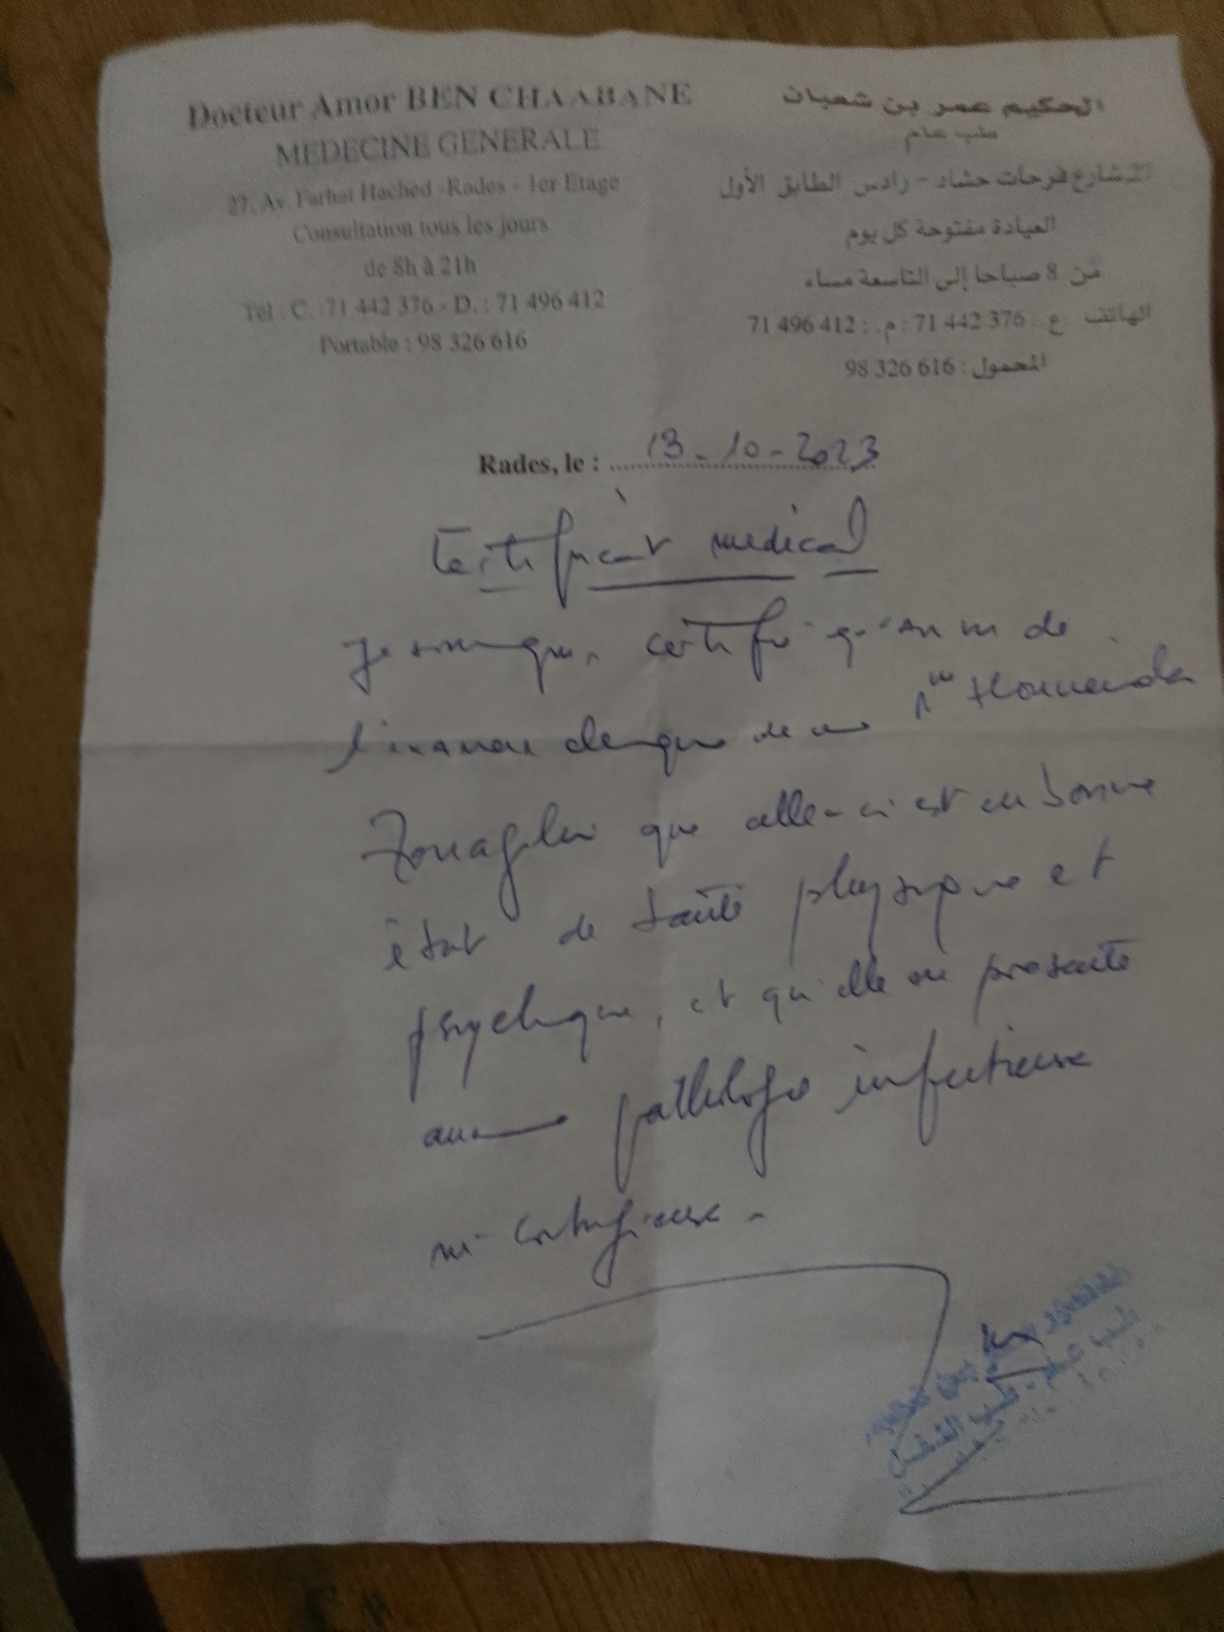 Docteur Amor BEN CHAABANE
MEDECINE GENERALE
27, Av. Farhat Hached - Rades - 1er Etage
Consultation tous les jours
de 8h à 21h
Tél : C. : 71 442 376 - D. : 71 496 412
Portable : 98 326 616
الحكيم عمر بن شعبان
طب عام
27 شارع فرحات حشاد - رادس الطابق الأول
العيادة مفتوحة كل يوم
من 8 صباحا إلى التاسعة مساء
الهاتف ع. : 71 442 376 : م. : 71 496 412
المحمول : 98 326 616
Rades, le : 13-10-2023
Certificat médical
Je soussigné, certifie qu'au vu de
l'examen clinique de ce
que celle-ci est en bonne
état de santé physique et
psychique, et qu'elle ne présente
aucune pathologie infectieuse
ni contagieuse.